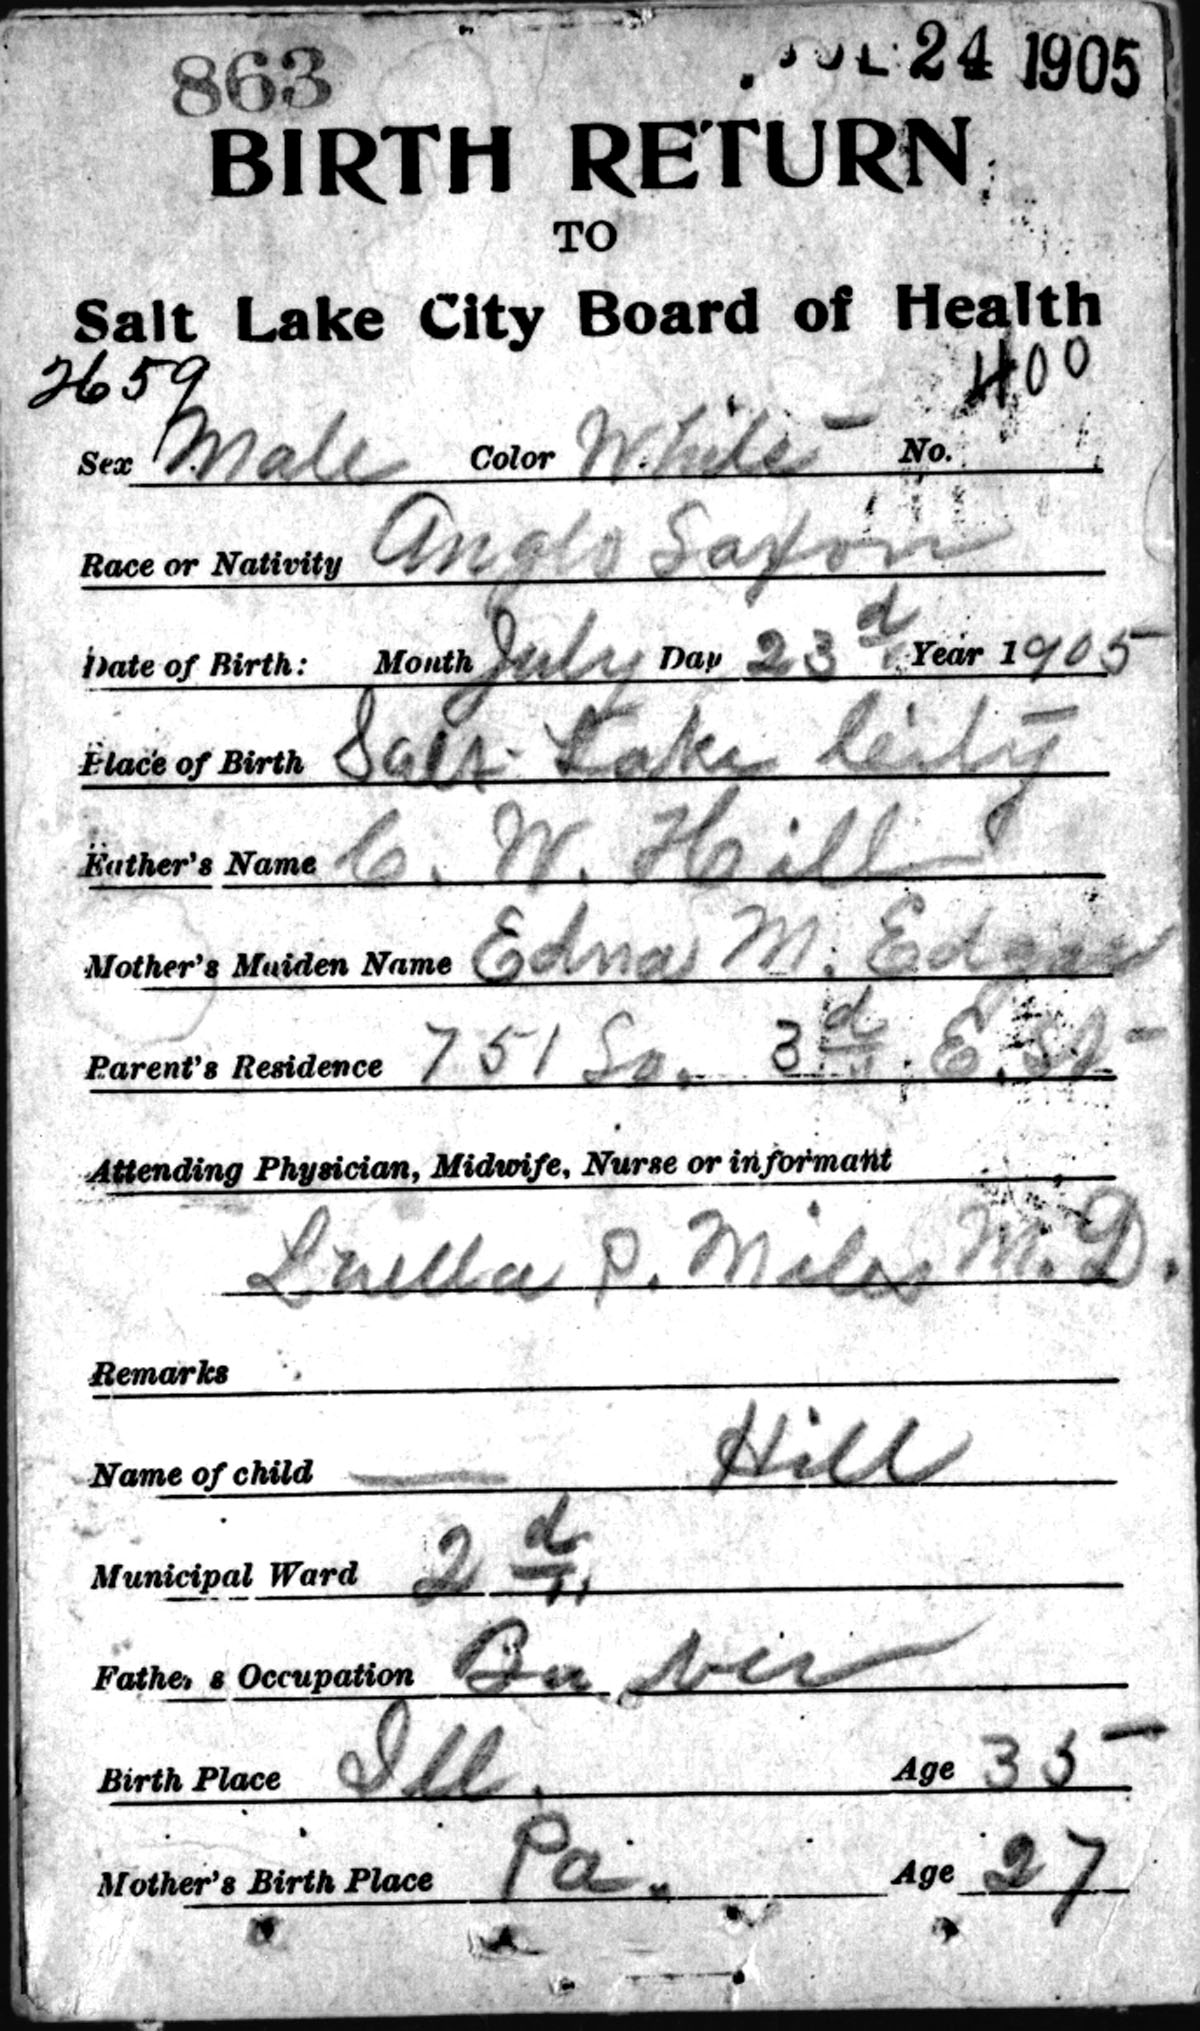 863 JUL 24 1905
BIRTH RETURN
TO
Salt Lake City Board of Health
2659 400
Sex Male Color White No.
Race or Nativity Anglo Saxon
Date of Birth: Month July Day 23d Year 1905
Place of Birth Salt Lake City
Father's Name C. W. Hill
Mother's Maiden Name Edna M. Edgar
Parent's Residence 751 So. 3d E. St
Attending Physician, Midwife, Nurse or informant
Luella P. Miles M.D.
Remarks
Name of child — Hill
Municipal Ward 2d
Father's Occupation Barber
Birth Place Ill. Age 35
Mother's Birth Place Pa. Age 27